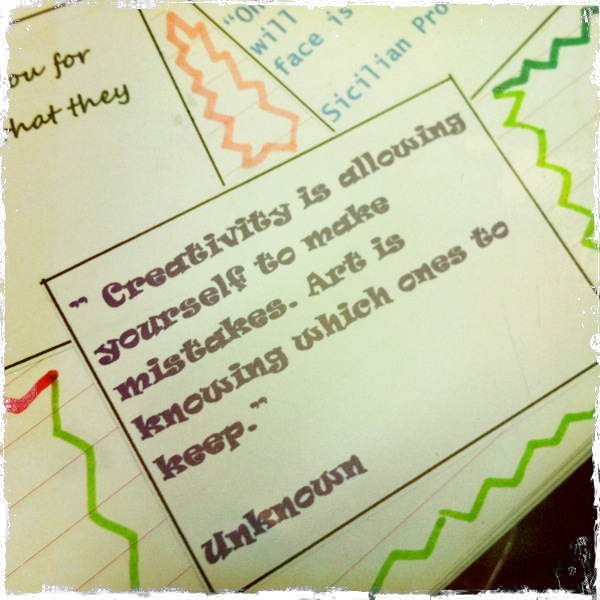 ou for
hat they
"On
will
face is
Sicilian Pro
" Creativity is allowing
yourself to make
mistakes. Art is
knowing which ones to
keep."
Unknown